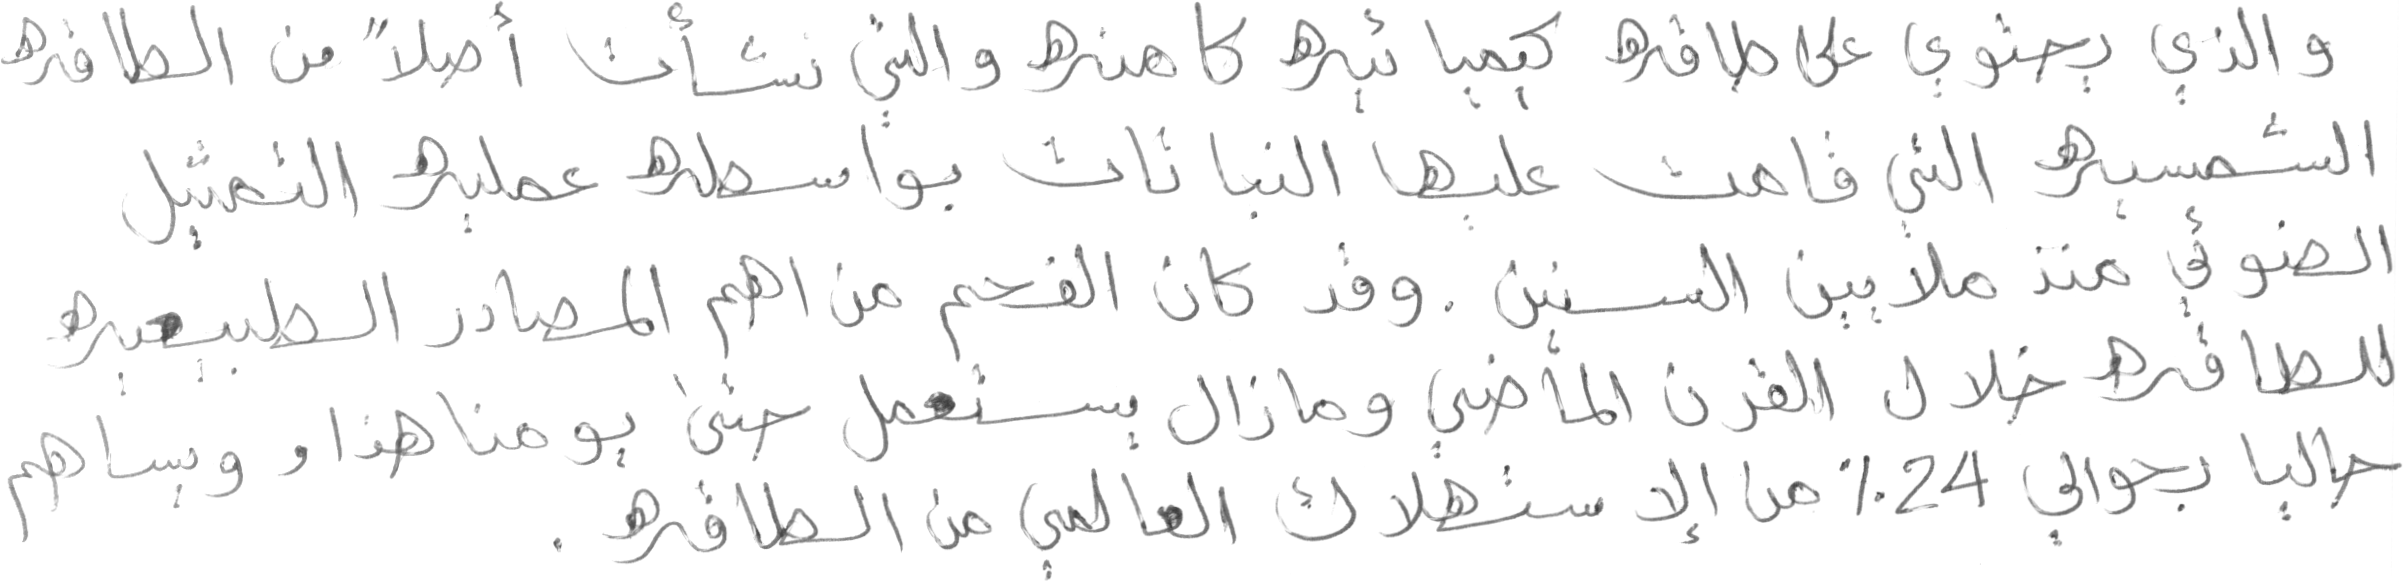 والذي يحتوي على طاقه كيميائيه كامنه والتي نشأت أصلاً من الطاقه
الشمسيه التي قامت عليها النباتات بواسطه عمليه التمثيل
الضوئي منذ ملايين السنين. وقد كان الفحم من اهم المصادر الطبيعيه
للطاقه خلال القرن الماضي ومازال يستعمل حتى يومنا هذا، ويساهم
حاليا بحوالي 24٪ من الإستهلاك العالمي من الطاقه.